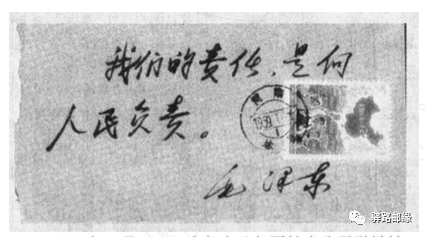 我们的责任，是向
人民负责。
毛泽东
驿路邮缘